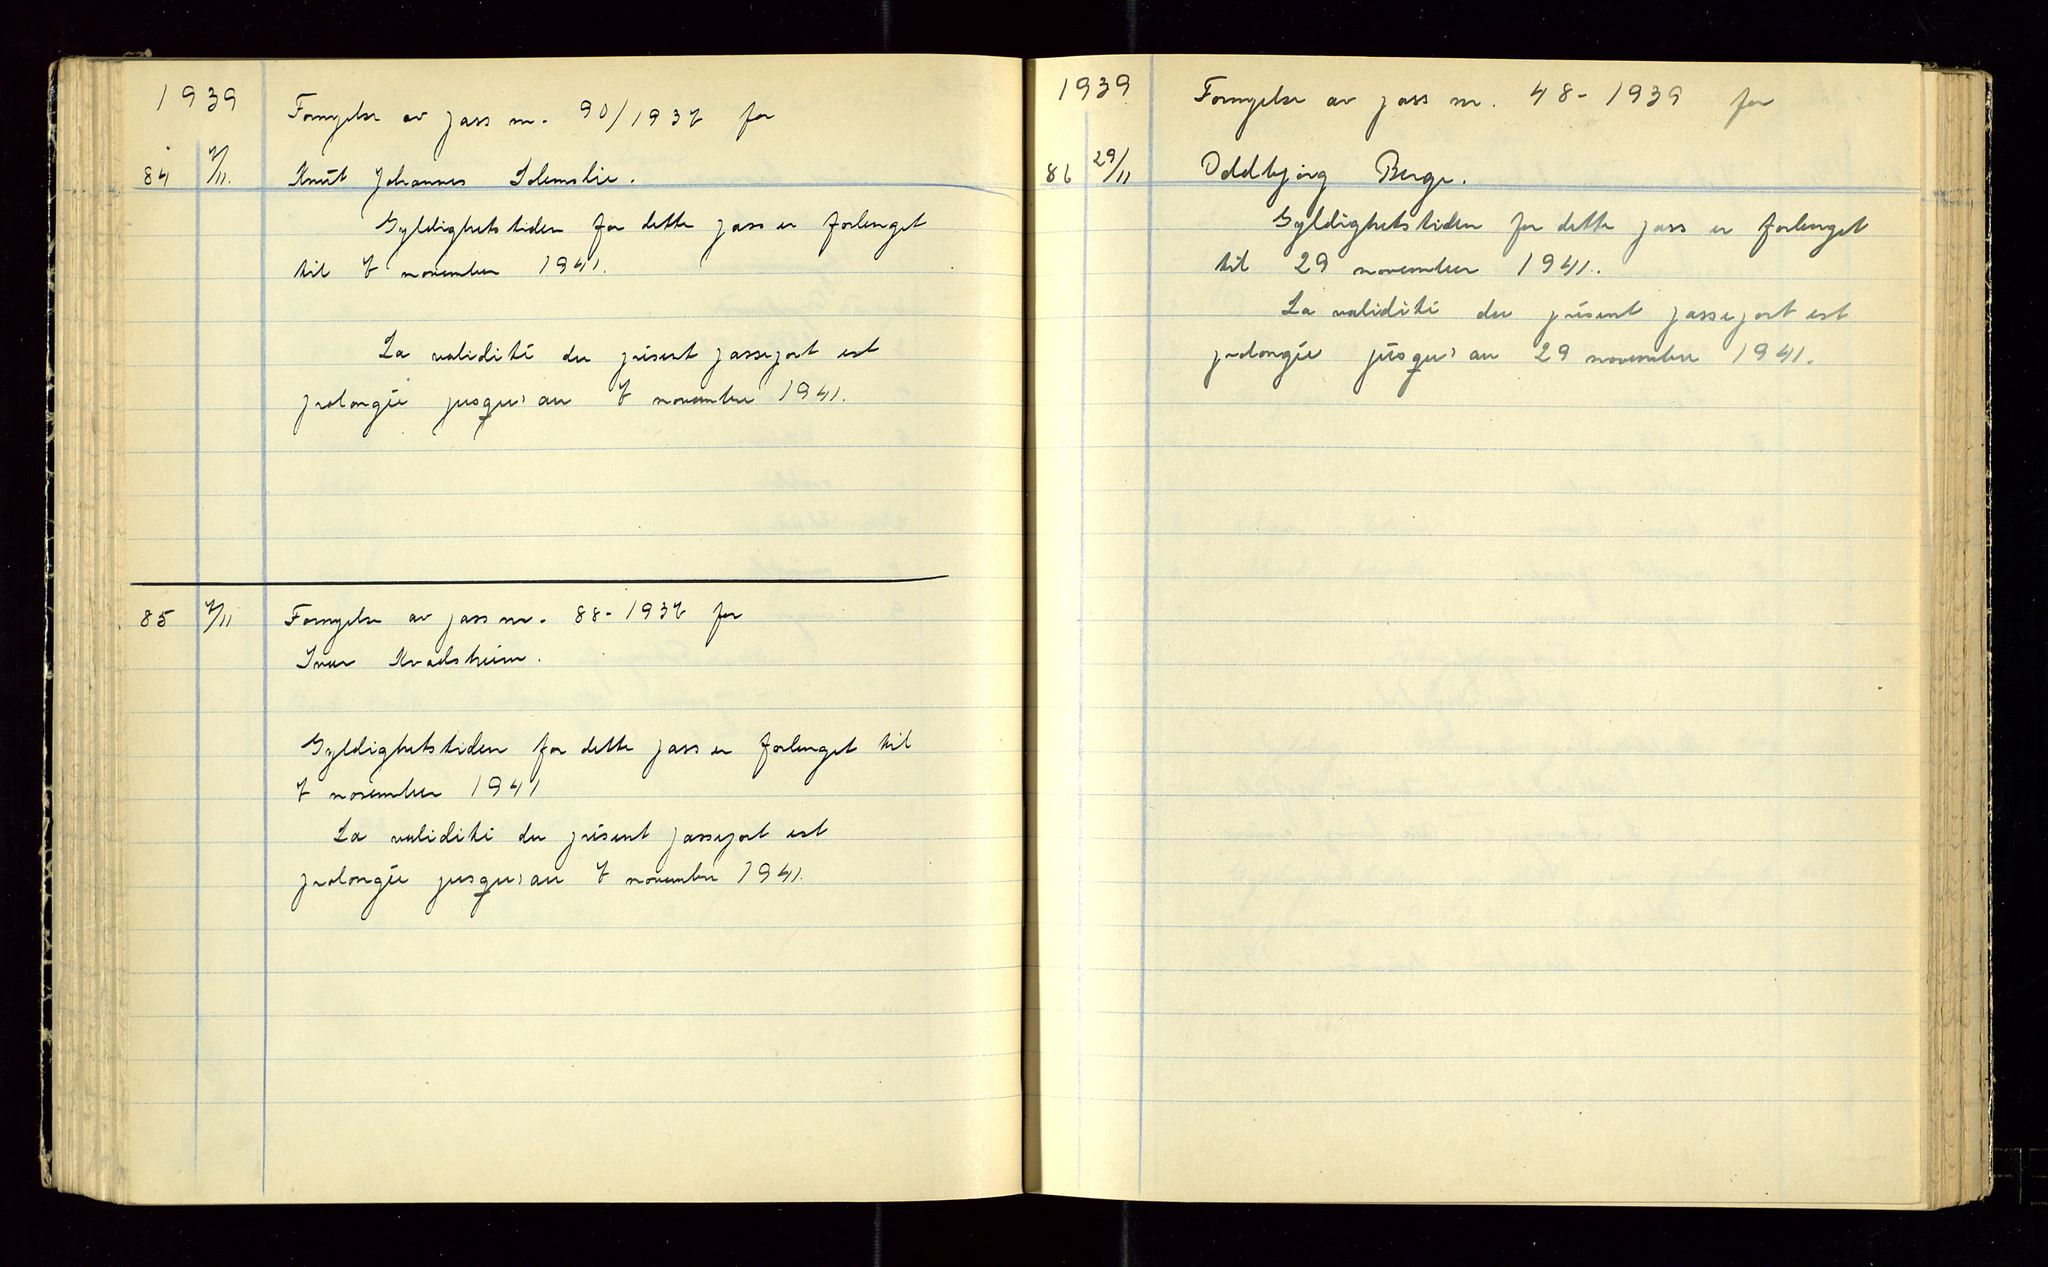 1939
Fornyelse av pass nr. 90/1937 for
84 7/11. Knut Johannes Solemslie.
Gyldighetstiden for dette pass er forlenget
til 7 november 1941.
La validité du présent passeport est
prolongée jusqu'au 7 novembre 1941.
85 7/11 Fornyelse av pass nr. 88-1937 for
Ivar Kvadsheim.
Gyldighetstiden for dette pass er forlenget til
7 november 1941
La validité du présent passeport est
prolongée jusqu'au 7 novembre 1941.
1939
Fornyelse av pass nr. 48-1939 for
86 29/11 Oddbjörg Berge.
Gyldighetstiden for dette pass er forlenget
til 29 november 1941.
La validité du présent passeport est
prolongée jusqu'au 29 novembre 1941.